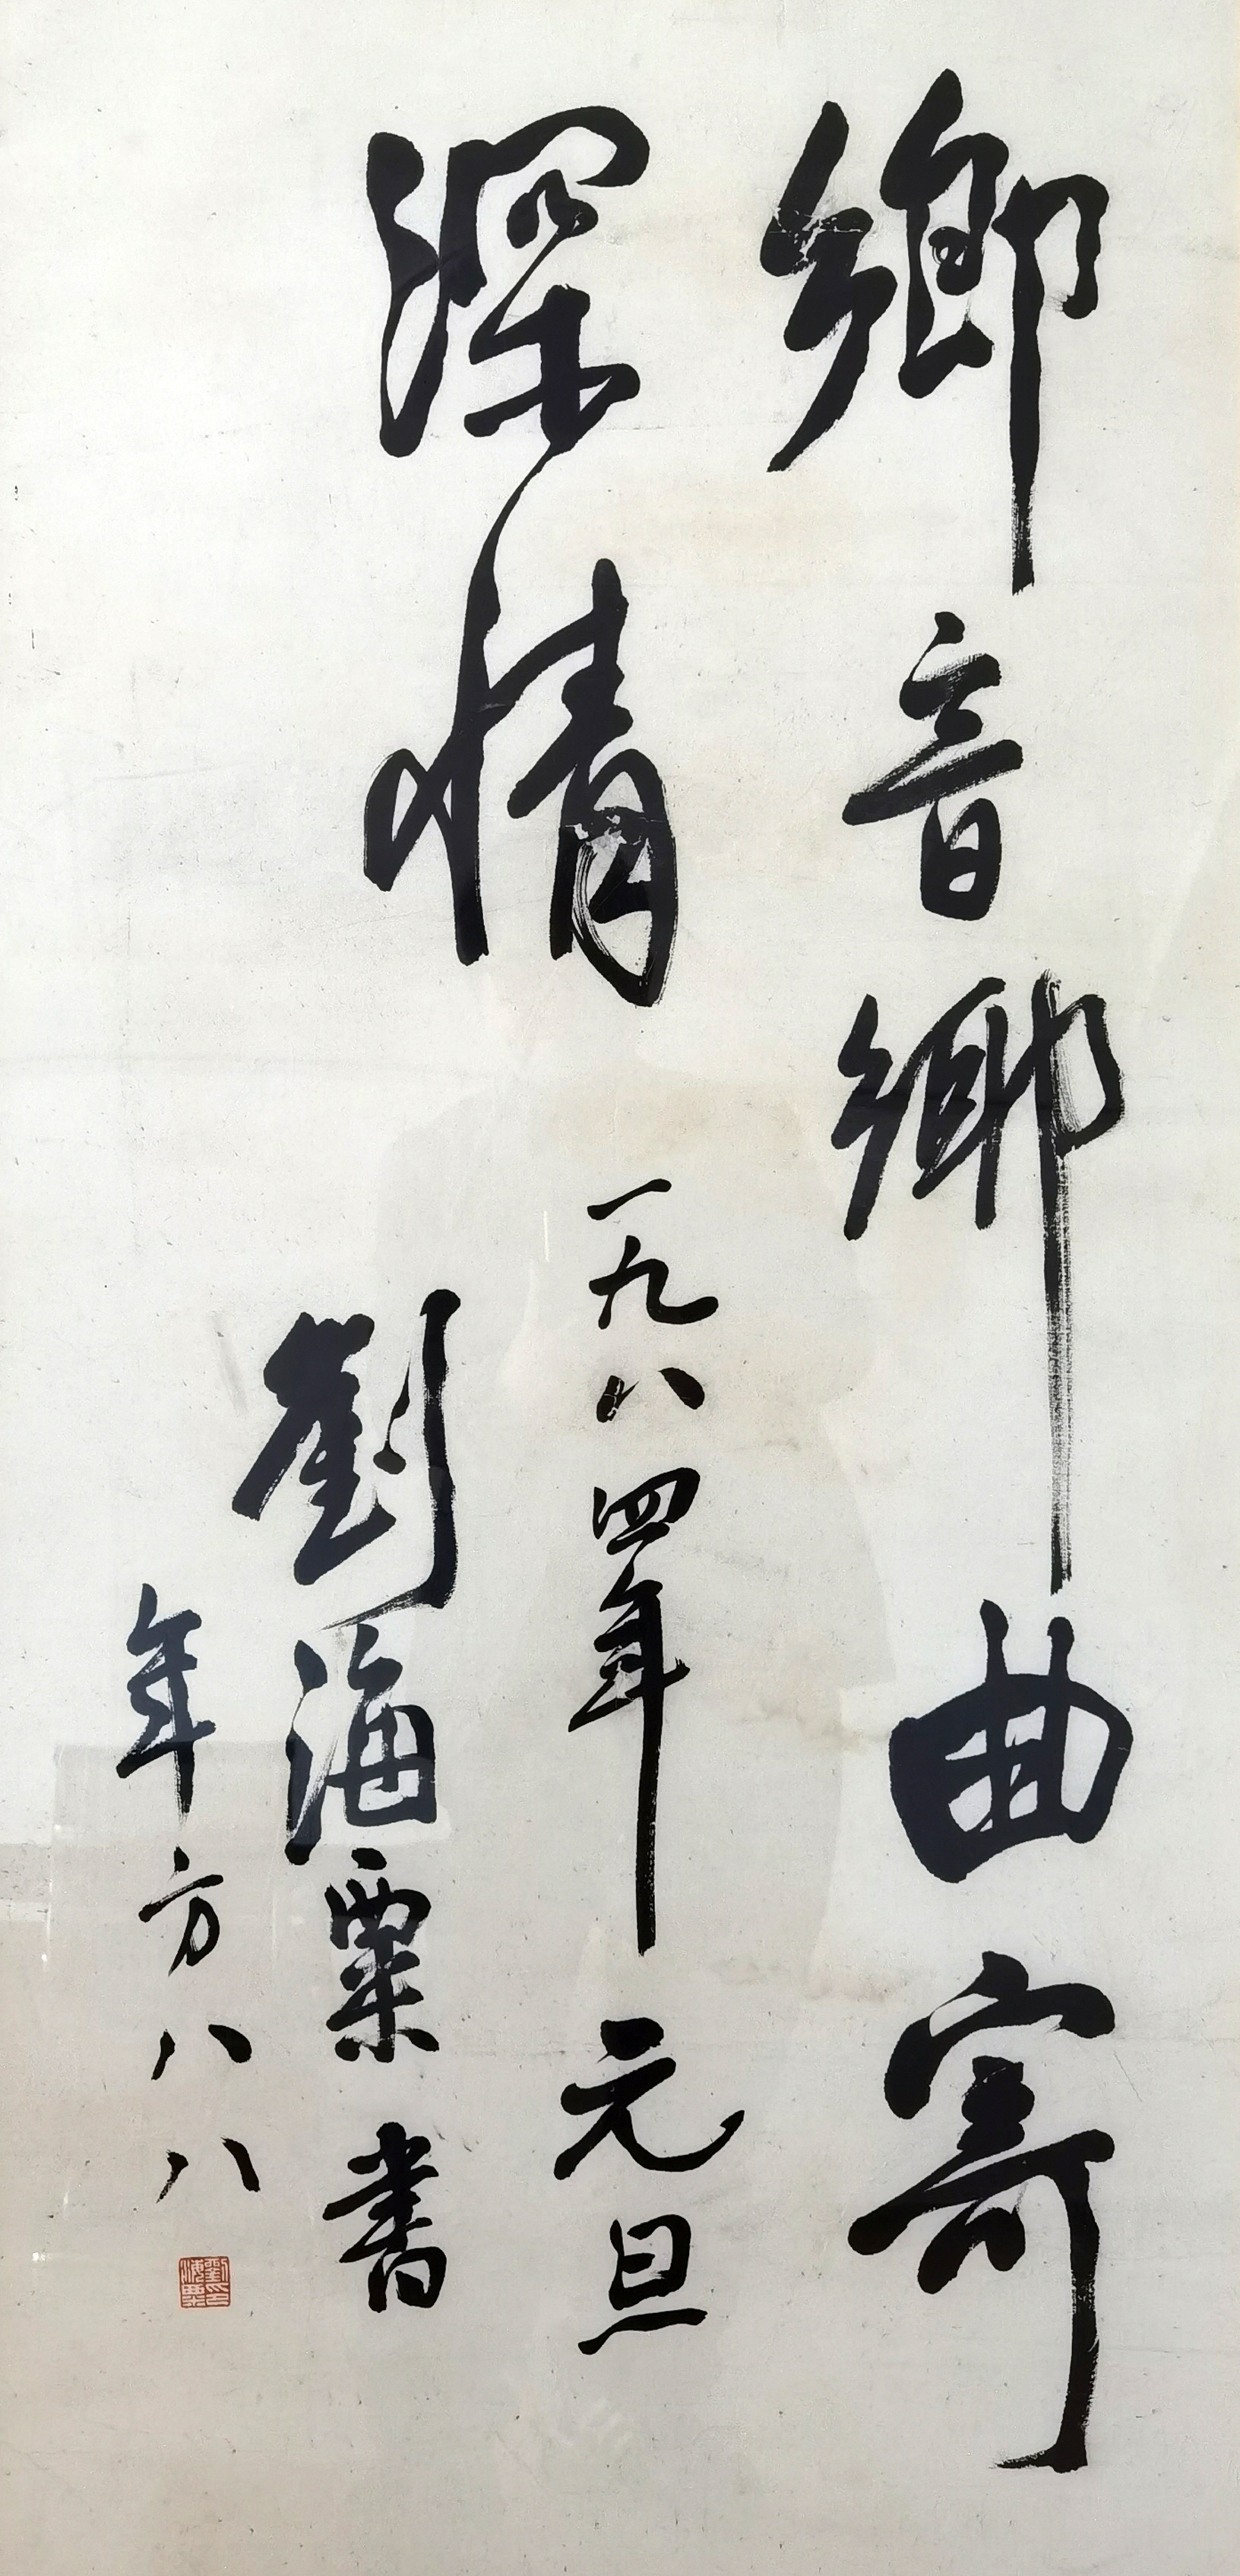 鄉音鄉曲寄
深情
一九八四年元旦
劉海粟書
年方八八
劉海粟印